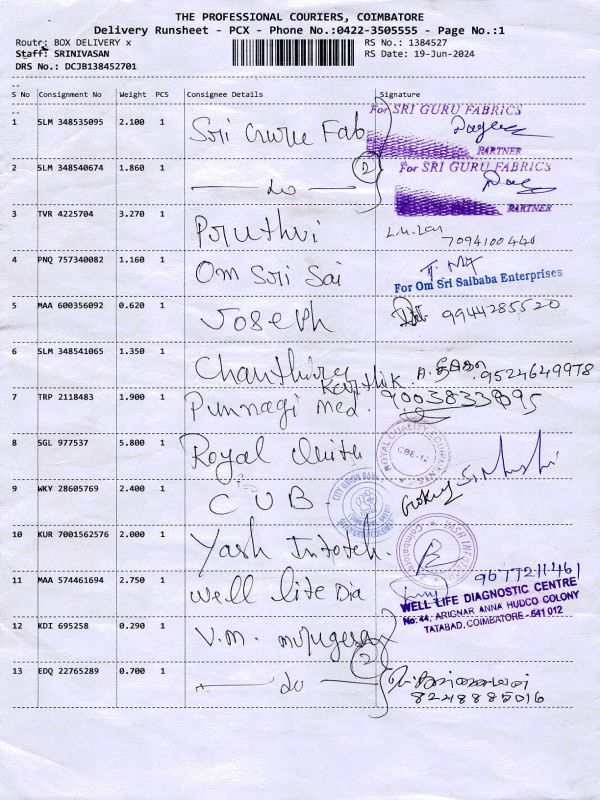 THE PROFESSIONAL COURIERS, COIMBATORE
Delivery Runsheet - PCX - Phone No.:0422-3505555 - Page No.:1
Route: BOX DELIVERY x
RS No.: 1384527
Staff: SRINIVASAN
RS Date: 19-Jun-2024
DRS No.: DCJB138452701
S No Consignment No Weight PCS Consignee Details Signature
1 SLM 348535095 2.100 1 Sri Guru Fab For SRI GURU FABRICS
PARTNER
2 SLM 348540674 1.860 1 — do — (2) For SRI GURU FABRICS
PARTNER
3 TVR 4225704 3.270 1 Pruthvi
7094100440
4 PNQ 757340082 1.160 1 Om Sri Sai
For Om Sri Saibaba Enterprises
5 MAA 600356092 0.620 1 Joseph 9944285520
6 SLM 348541065 1.350 1 9524649978
Karthik
7 TRP 2118483 1.900 1 Punnagi Med. 9003833895
8 SGL 977537 5.800 1 Royal
ROYAL QUALITY EQUIPMENTS
CBE-12
9 WKY 28605769 2.400 1 CUB
CITY UNION BANK
10 KUR 7001562576 2.000 1 Yash Infotech.
YASH INFOTECH
Coimbatore
11 MAA 574461694 2.750 1 Well life Dia 9677211461
WELL LIFE DIAGNOSTIC CENTRE
No:44, ARIGNAR ANNA HUDCO COLONY
TATABAD, COIMBATORE - 641 012
12 KDI 695258 0.290 1 V.M. murugesa
13 EDQ 22765289 0.700 1 — do — (2)
8248885016